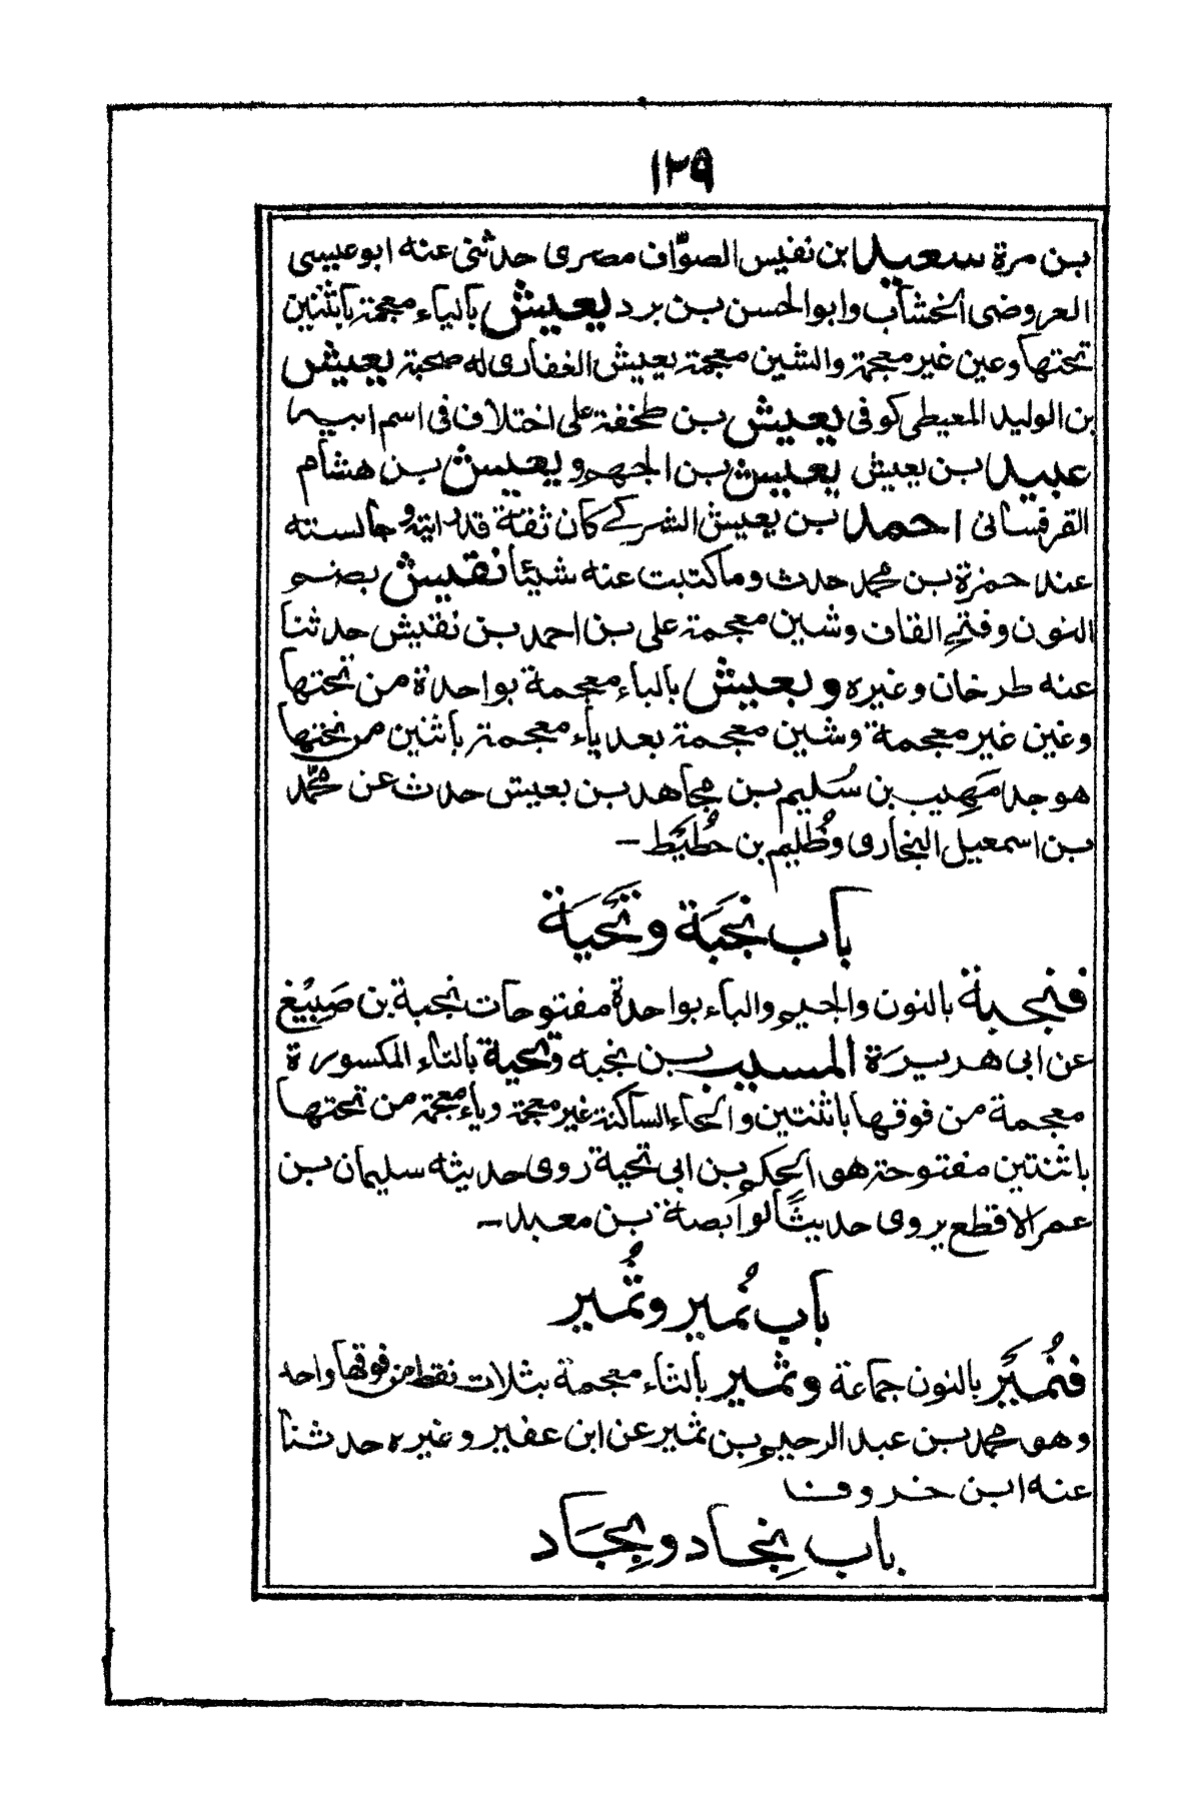 ١٢٩
بن مرة سعيد ابن نفيس الصوّاف مصرى حدثنى عنه ابو عيسى
العروضى الخشاب وابو الحسن بن برد يعيش بالياء معجمة باثنين
تحتها وعين غير معجمة والشين معجمة يعيش الغفارى له صحبة يعيش
بن الوليد المعيطى كوفى يعيش بن طخفة على اختلاف فى اسم ابيه
عبيد بن يعيش يعيش بن الجهم ويعيش بن هشام
القرقسانى احمد بن يعيش كان ثقة قد رايته وجالسته
عند حمزة بن محمد حدث وما كتبت عنه شيئا نقيش بضم
النون وفتح القاف وشين معجمة على بن احمد بن نقيش حدثنا
عنه طرخان وغيره وبعيش بالباء معجمة بواحدة من تحتها
وغين غير معجمة وشين معجمة بعد ياء معجمة باثنين من تحتها
هو جد مَهِيب بن سُليم بن مجاهد بن بعيش حدث عن محمّد
بن اسمعيل البخارى وظُليم بن حُطَيَط –
باب نجَبَة وتَحْيَة
فنجبة بالنون والجيم والباء بواحدة مفتوحات نجبة بن صَبِيْغ
عن ابى هريرَة المسيب بن نجبه وتحية بالتاء المكسورة
معجمة من فوقها باثنتين والحاء الساكنة غير معجمة وياء معجمة من تحتها
باثنتين مفتوحة هو الحكم بن ابى تحية روى حديثه سليمان بن
عمر الاقطع يروى حديثًا لوابصة بن معبد –
باب نُمير وثُمير
فنُميَر بالنون جماعة وثمير بالثاء معجمة بثلاث نقط من فوقها واحد
وهو محمد بن عبد الرحيم بن ثمير عن ابن عفير وغيره حدثنا
عنه ابن خروف
باب نِجاد وبِجَاد